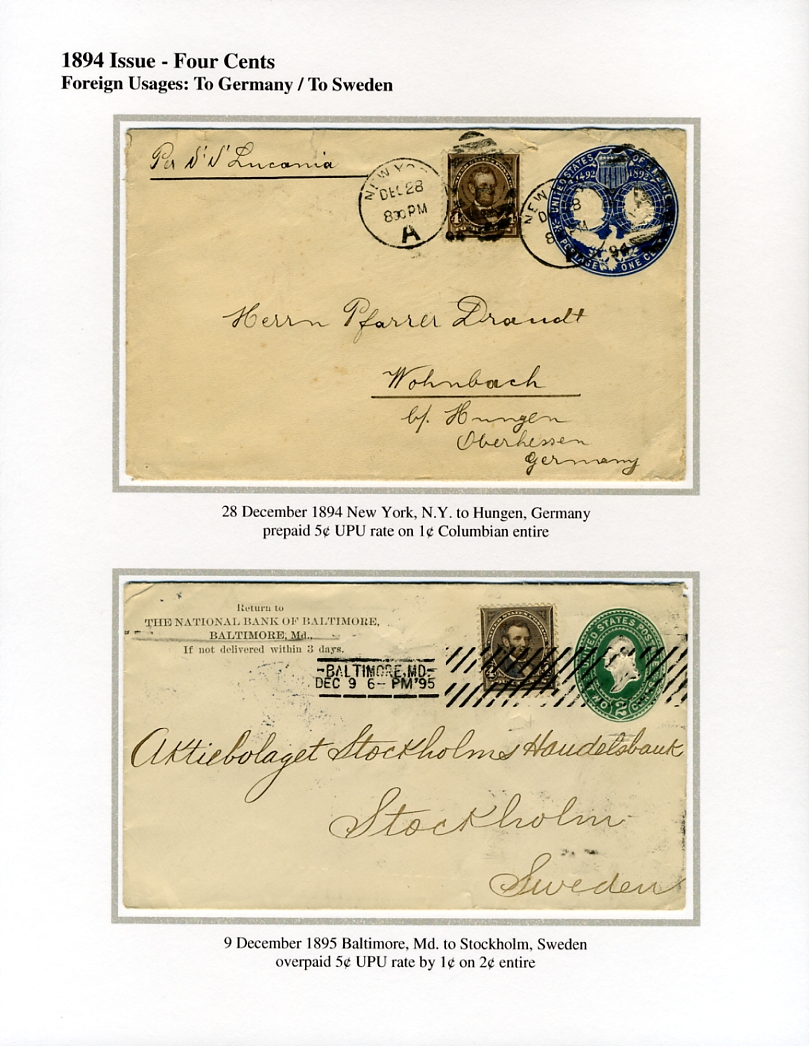 1894 Issue - Four Cents
Foreign Usages: To Germany / To Sweden
Per S'S' Lucania
NEW YO
DEC 28
8 30 PM
A
UNITED STATES OF
1492 1892
POSTAGE ONE CE
NEW
D 8
8 PM
94
Herrn Pfarrer Drandt
Wohnbach
b/. Hungen
Oberhessen
Germany
28 December 1894 New York, N.Y. to Hungen, Germany
prepaid 5¢ UPU rate on 1¢ Columbian entire
Return to
THE NATIONAL BANK OF BALTIMORE,
BALTIMORE, Md.,
If not delivered within 3 days.
BALTIMORE, MD.
DEC 9 6-PM '95
UNITED STATES POST
TWO 2 CENTS
Aktiebolaget Stockholms Handelsbank
Stockholm
Sweden
9 December 1895 Baltimore, Md. to Stockholm, Sweden
overpaid 5¢ UPU rate by 1¢ on 2¢ entire